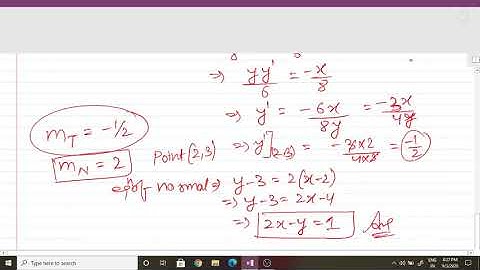 ⇒ yy'/6 = -x/8
⇒ y' = -6x/8y = -3x/4y
m_T = -1/2
m_N = 2
Point (2,3) ⇒ y']_(2,3) = -3×2/4×3 = -1/2
eqn of normal ⇒ y-3 = 2(x-2)
⇒ y-3 = 2x-4
⇒ 2x-y = 1 Ans
Type here to search
ENG
IN